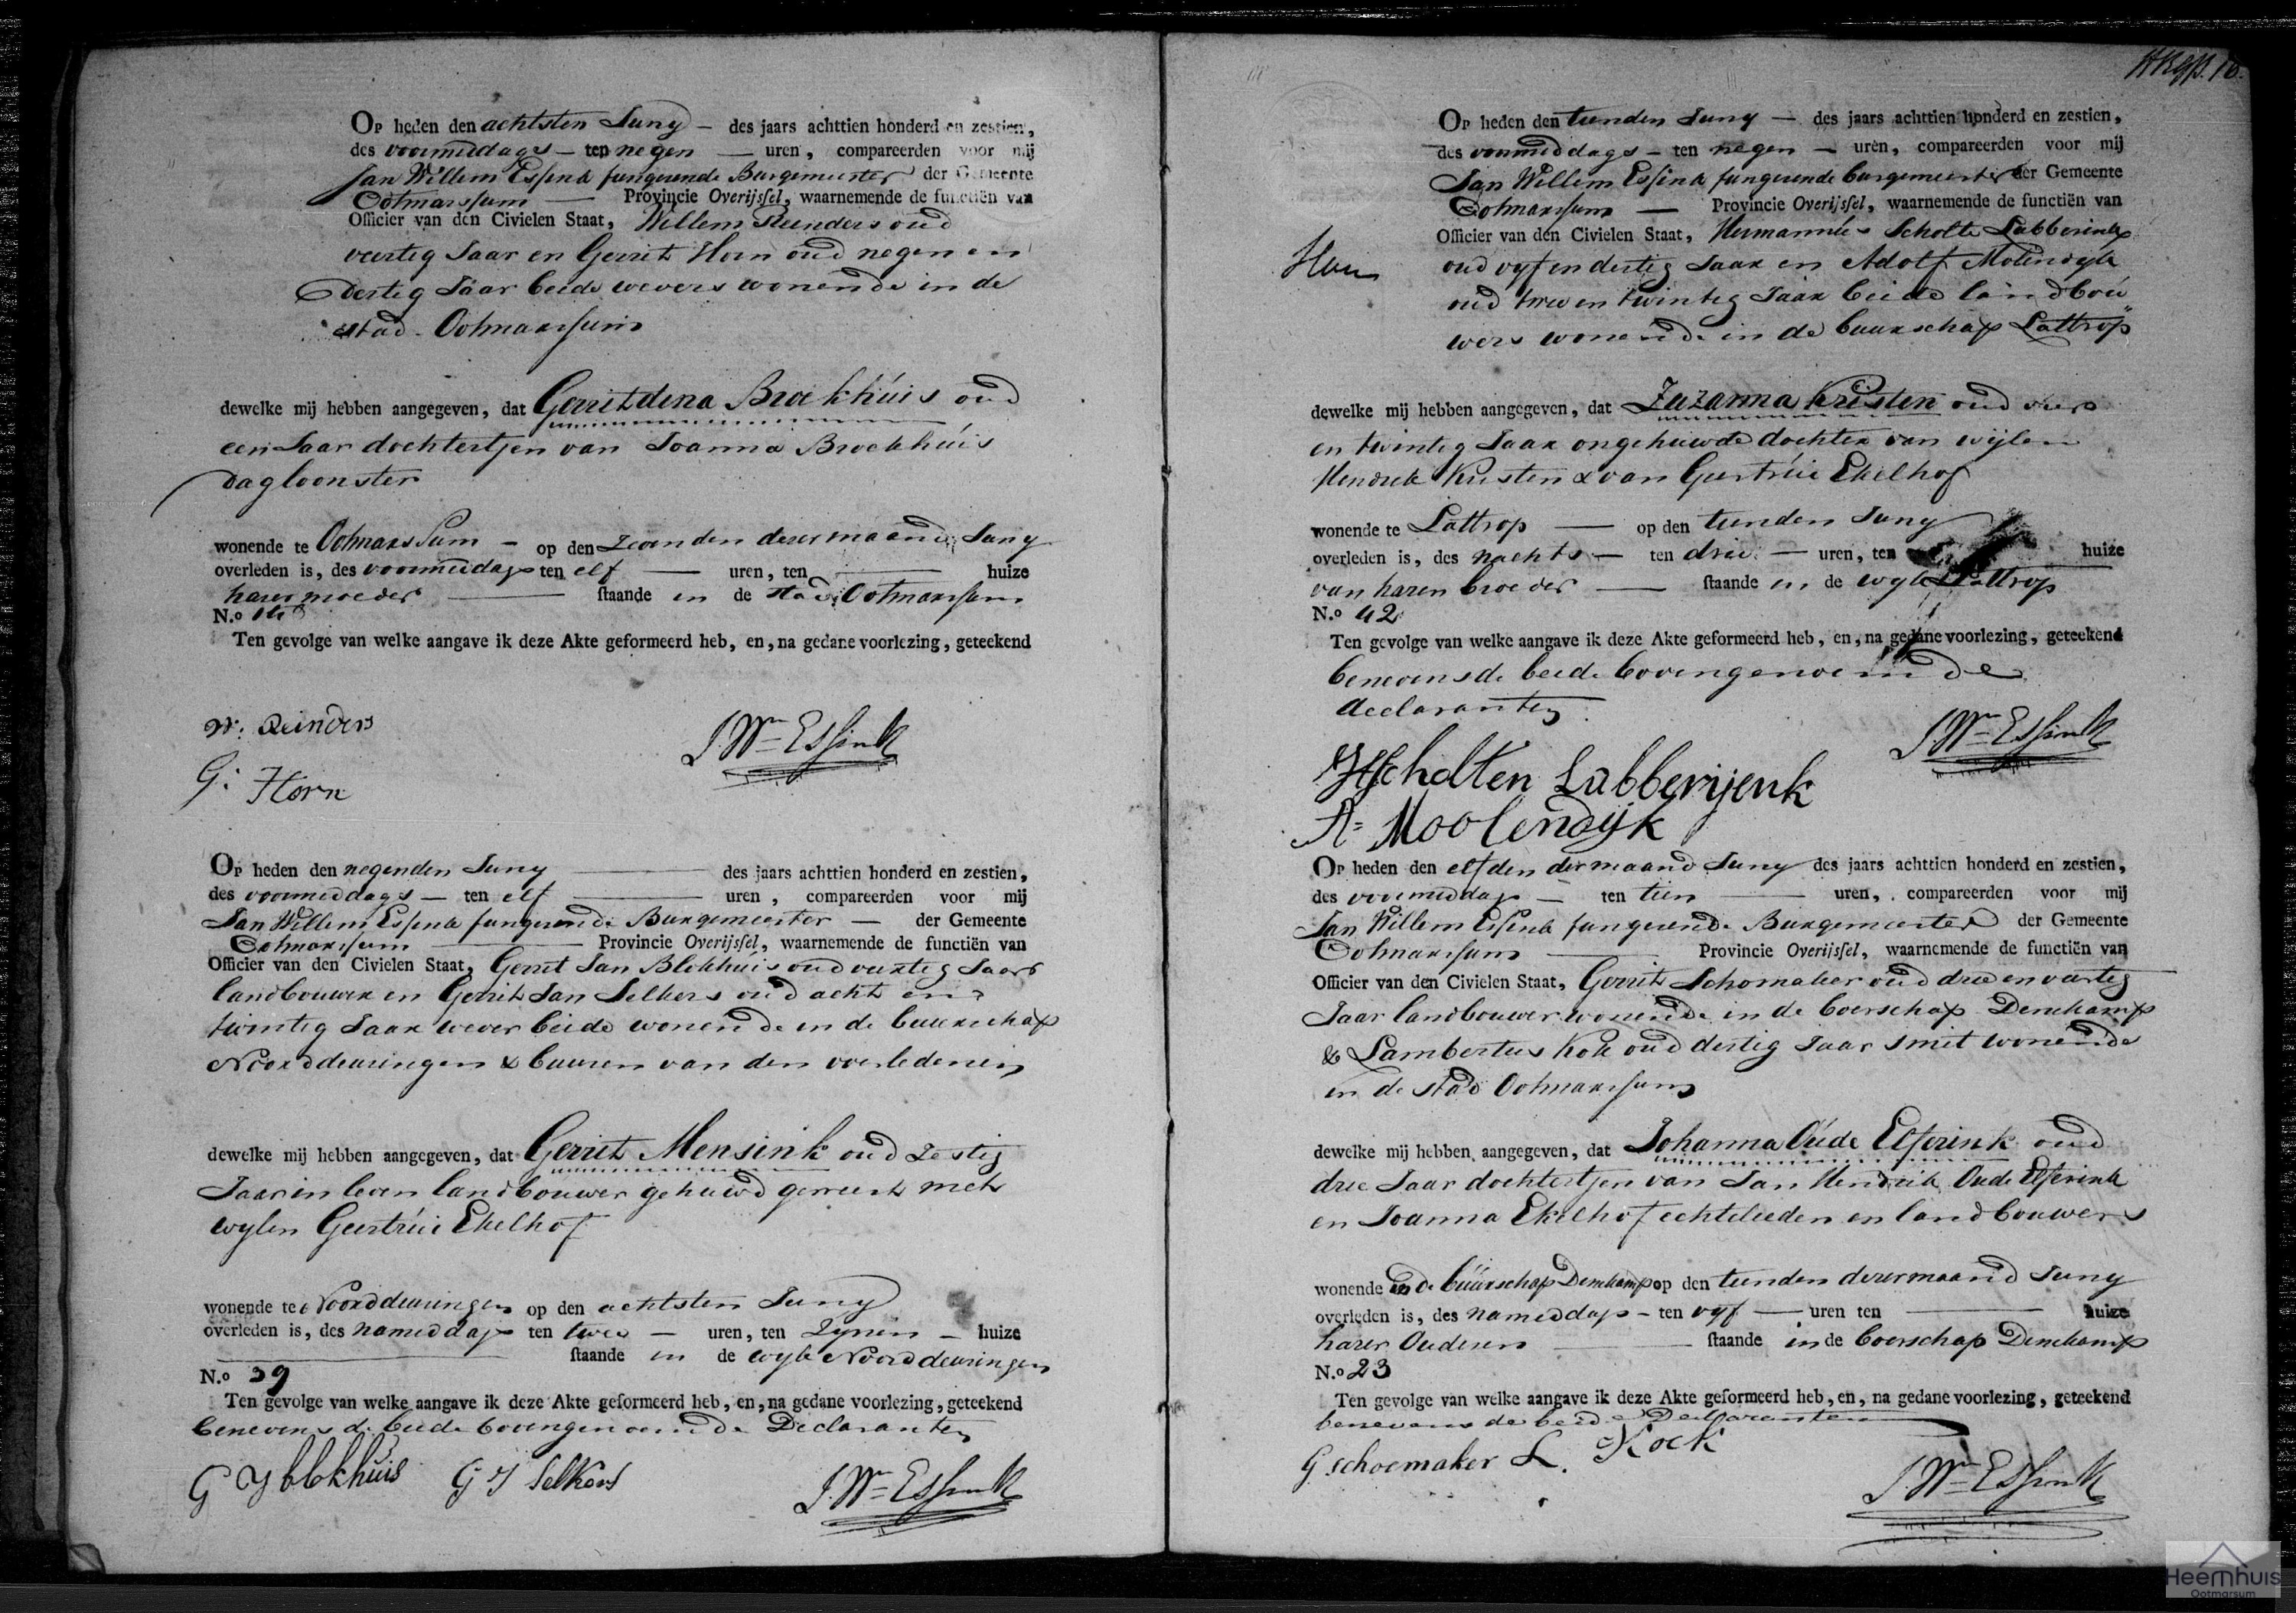 Op heden den achtsten Juny — des jaars achttien honderd en zestien,
des voormiddags — ten negen — uren, compareerden voor mij
Jan Willem Essink fungerende Burgemeester der Gemeente
Ootmarssum — Provincie Overijssel, waarnemende de functiën van
Officier van den Civielen Staat, Willem Reinders oud
veertig Jaar en Gerrit Horn oud negen en
dertig Jaar beide wevers wonende in de
stad Ootmarssum
dewelke mij hebben aangegeven, dat Gerritdena Broekhuis oud
een Jaar dochtertjen van Joanna Broekhuis
dagloonster
wonende te Ootmarssum — op den zevenden dezer maand Juny
overleden is, des voormiddags ten elf — uren, ten — huize
harer moeder — staande in de stad Ootmarssum
N.o
Ten gevolge van welke aangave ik deze Akte geformeerd heb, en, na gedane voorlezing, geteekend
W: Reinders
J. Wm Essink
G: Horn
Op heden den negenden Juny — des jaars achttien honderd en zestien,
des voormiddags — ten elf — uren, compareerden voor mij
Jan Willem Essink fungerende Burgemeester — der Gemeente
Ootmarssum — Provincie Overijssel, waarnemende de functiën van
Officier van den Civielen Staat, Gerrit Jan Blokhuis oud veertig Jaar
landbouwer en Gerrit Jan Selkers oud acht en
twintig Jaar wever beide wonende in de buurschap
Noorddeuringen & buuren van den overledenen
dewelke mij hebben aangegeven, dat Gerrit Mensink oud zestig
Jaar in leven landbouwer gehuwd geweest met
wylen Geertrui Ekelhof
wonende te Noorddeuringen op den achtsten Juny
overleden is, des nameddags ten twee — uren, ten zynen — huize
— staande in de wyk Noorddeuringen
N.o 39
Ten gevolge van welke aangave ik deze Akte geformeerd heb, en, na gedane voorlezing, geteekend
benevens de beide bovengenoemde Declaranten
G J blokhuis G J Selkers
J. Wm Essink
Op heden den tienden Juny — des jaars achttien honderd en zestien,
des voormiddags — ten negen — uren, compareerden voor mij
Jan Willem Essink fungerende burgemeester der Gemeente
Ootmarssum — Provincie Overijssel, waarnemende de functiën van
Officier van den Civielen Staat, Hermannus Scholte Lubberink
oud vyf en dertig Jaar en Adolf Molendyk
oud twee en twintig Jaar beide landbou
wers wonende in de buurschap Lattrop
dewelke mij hebben aangegeven, dat Zuzanna Kristen oud vier
en twintig Jaar ongehuwde dochter van wijlen
Hendrik Kristen & van Geertrui Ekelhof
wonende te Lattrop — op den tienden Juny
overleden is, des nachts — ten drie — uren, ten huize
van haren broeder — staande in de wyk Lattrop
N.o 42
Ten gevolge van welke aangave ik deze Akte geformeerd heb, en, na gedane voorlezing, geteekend
benevens de beide bovengenoemde
declaranten
J. Wm Essink
H Scholten Lubberijenk
A= Moolendijk
Op heden den elfden der maand Juny des jaars achttien honderd en zestien,
des voormiddags — ten tien — uren, compareerden voor mij
Jan Willem Essink fungerende Burgemeester der Gemeente
Ootmarssum — Provincie Overijssel, waarnemende de functiën van
Officier van den Civielen Staat, Gerrit Schomaker oud drie en veertig
Jaar landbouwer wonende in de boerschap Denekamp
& Lambertus Kok oud dertig Jaar smit wonende
in de stad Ootmarssum
dewelke mij hebben aangegeven, dat Johanna Oude Elferink oud
drie Jaar dochtertjen van Jan Hendrik Oude Elferink
en Joanna Ekelhof echtelieden en landbouwers
wonende in de buurschap Denekamp op den tienden dezer maand Juny
overleden is, des nameddags — ten vyf — uren ten — huize
harer Ouderen — staande in de boerschap Denekamp
N.o 23
Ten gevolge van welke aangave ik deze Akte geformeerd heb, en, na gedane voorlezing, geteekend
benevens de beide Declaranten
G schoemaker L. Kock
J. Wm Essink
Heemhuis
Ootmarsum